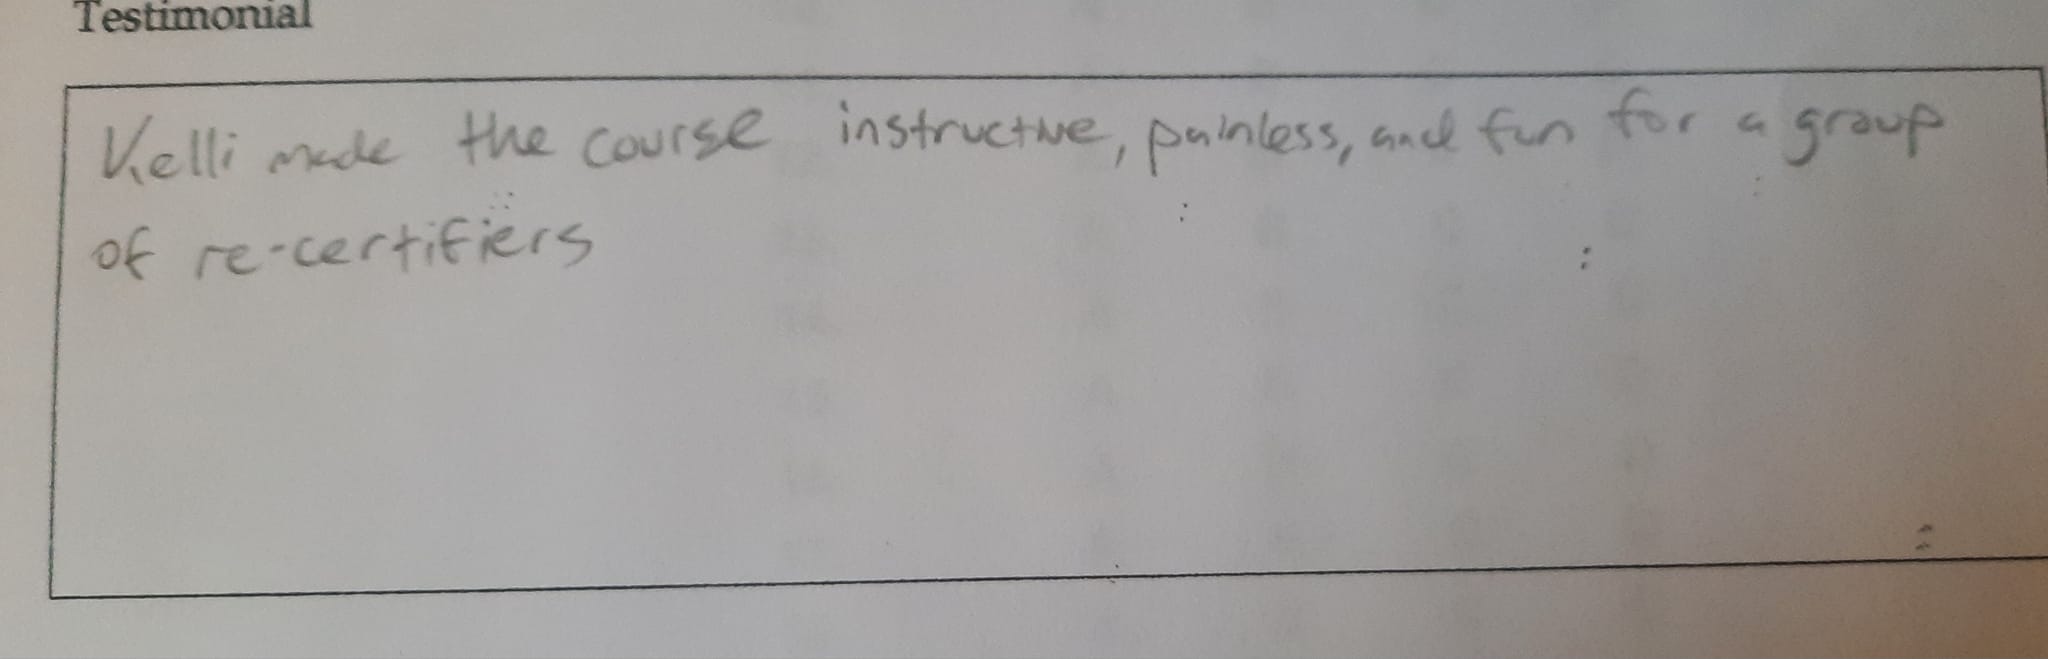 Testimonial
Kelli made the course instructive, painless, and fun for a group
of re-certifiers